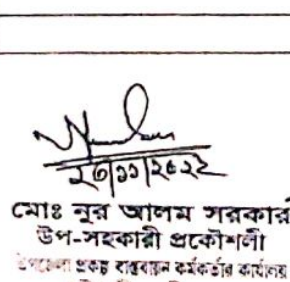 ২৩/১১/২০২২
মোঃ নুর আলম সরকার
উপ-সহকারী প্রকৌশলী
উপজেলা প্রকল্প বাস্তবায়ন কর্মকর্তার কার্যালয়